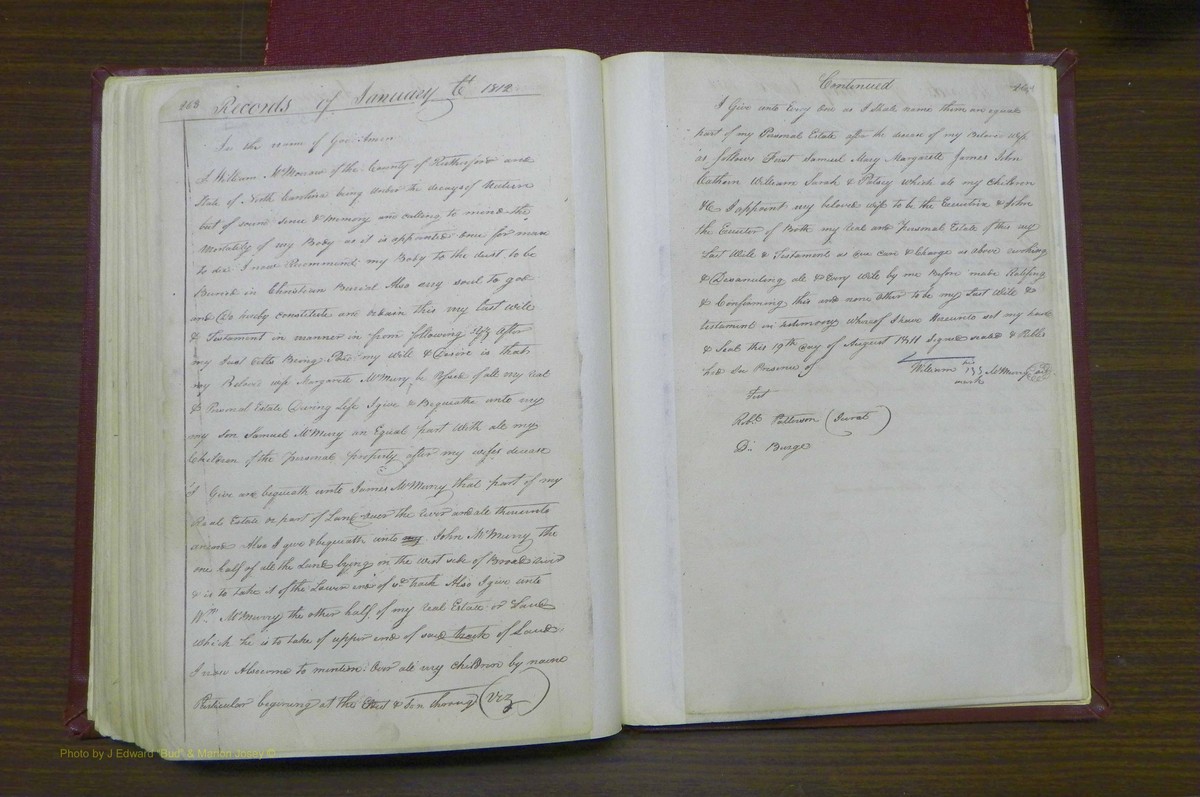 263 Records of January Ct 1812
In the name of God Amen
I William McMurry of the County of Rutherford and
State of North Carolina being Under the decays of Nature
but of sound sense & memory and calling to mind the
Mortality of my Body as it is appointed once for man
to die I now Recommend my Body to the dust to be
Buried in Christian Burial Also my soul to god
and Do hereby constitute and ordain this my last will
& Testament in manner in form following after
my Just debts Being Paid my Will & Desire is that
my Beloved wife Margarett McMurry be of all my real
& Personal Estate During Life I give & Bequeath unto my
my son Samuel McMurry an Equal part With all my
Children of the Personal property after my wifes decease
I Give and bequeath unto James McMurry that part of my
Real Estate or part of Land over the river and all thereunto
Also I give & bequeath unto my John McMurry the
one half of all the Land lying on the west side of Broad river
& is to take it of the Lower end of sd track Also I give unto
Wm McMurry the other half of my real Estate or Land
which he is to take of upper end of said track of Land
I now Also come to mention Over all my children by name
Particular begining at the Eldest & on (Viz)
Continued
I Give unto Every One as I shall name them an equal
part of my Personal Estate after the decease of my Beloved wife
as follows First Samuel Mary Margarett James John
Cathern William Sarah & Patsey which all my children
&C I appoint my beloved wife to be the Executrix & John
the Executor of Both my real and Personal Estate of this my
Last Will & Testament as our care & Charge as above
& Disanuling all & Every Will by me Before made Ratifing
& Confirming this and none other to be my Last Will &
testament in testimony Whereof I have hereunto set my hand
& Seal this 19th day of August 1811 Signed sealed & Publi
hed In Presence of
William his McMurry seal
mark
Test
Robt Patterson (Jurat)
Burge
Photo by J Edward "Bud" & Marion Josey ©